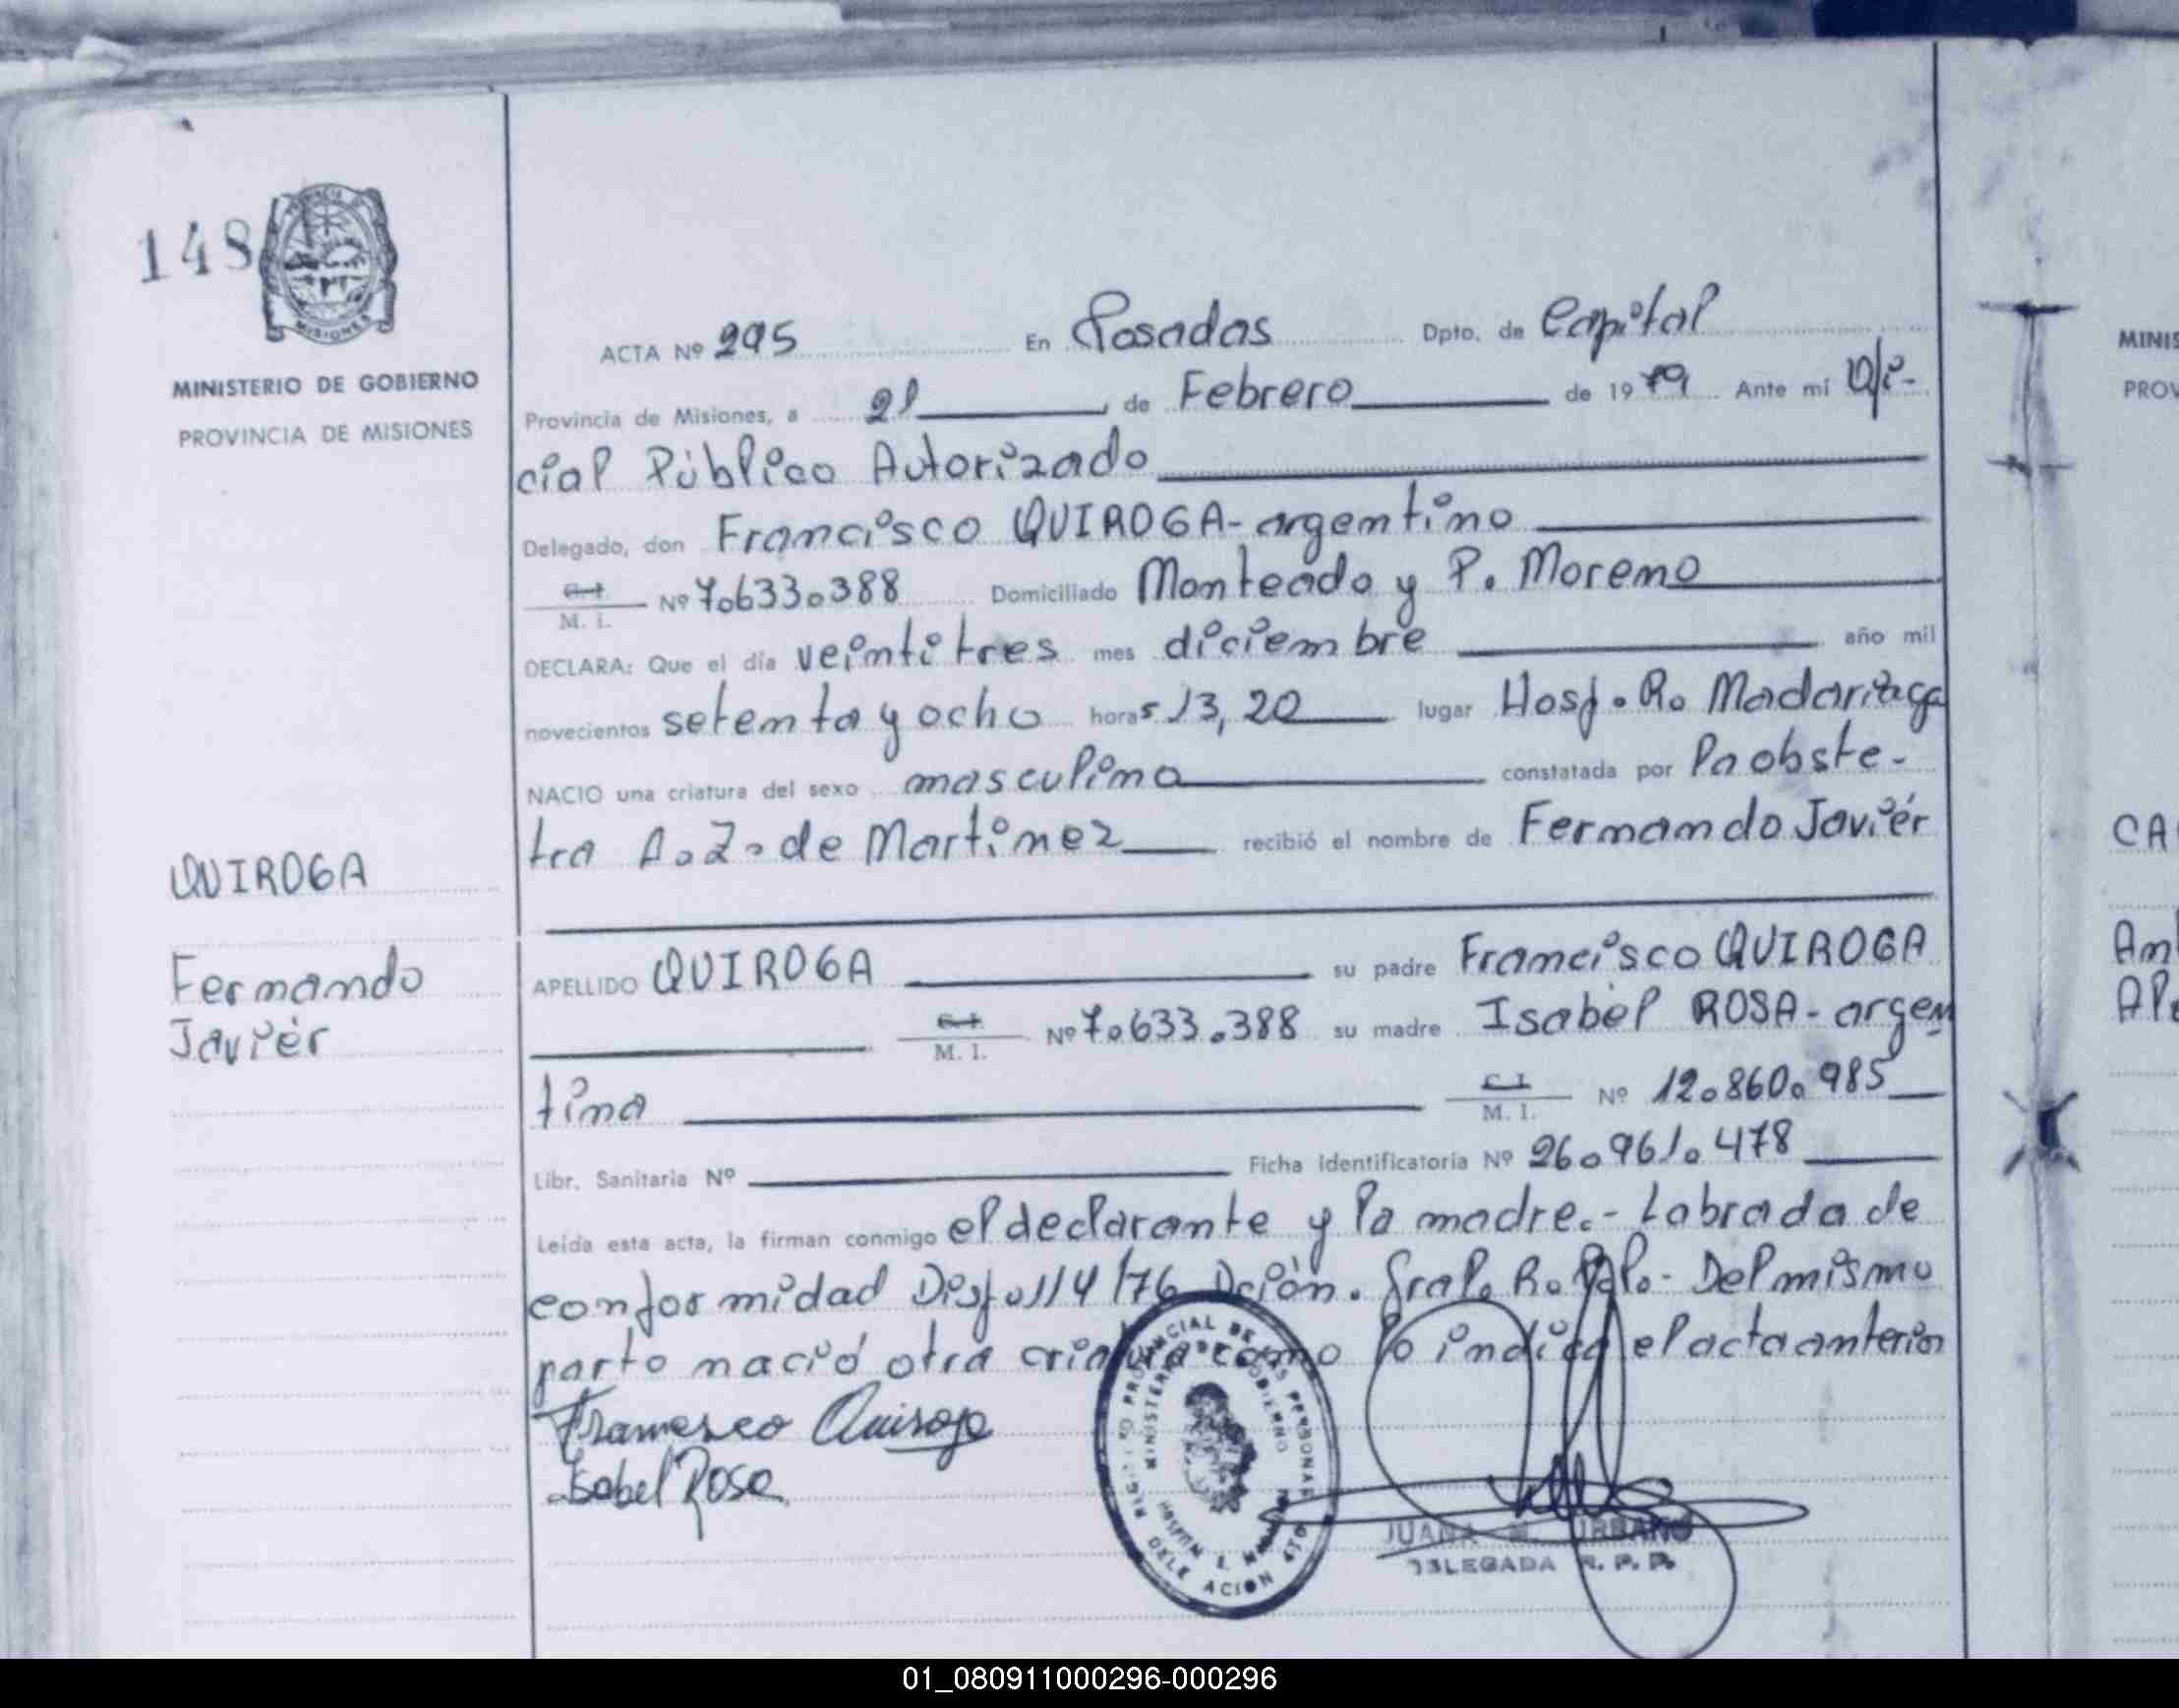 148
MISIONES
MINISTERIO DE GOBIERNO
PROVINCIA DE MISIONES
ACTA Nº 295 En Posadas Dpto. de Capital
Provincia de Misiones, a 21 de Febrero de 1979 Ante mí Ofi-
cial Público Autorizado
Delegado, don Francisco QUIROGA - argentino
C.I. M. I. Nº 7.633.388 Domiciliado Monteado y P. Moreno
DECLARA: Que el día veintitres mes diciembre año mil
novecientos setenta y ocho horas 13,20 lugar Hosp. R. Madariaga
NACIO una criatura del sexo masculino constatada por la obste-
tra A. Z. de Martinez recibió el nombre de Fernando Javiér
QUIROGA
Fernando
Javiér
APELLIDO QUIROGA su padre Francisco QUIROGA
C.I. M. I. Nº 7.633.388 su madre Isabel ROSA - argen
tina C.I. M. I. Nº 12.860.985
Libr. Sanitaria Nº Ficha identificatoria Nº 26.961.478
Leída esta acta, la firman conmigo el declarante y la madre.- Labrada de
conformidad Disp. 114/76 Dción. Gral. R. Del mismo
parto nació otra criatura como lo indica el acta anterior
Francisco Quiroga
Isabel Rosa
JUANA M. URBANO
DELEGADA R. P. P.
MINIS
PROV
CA
An
Al
01_080911000296-000296